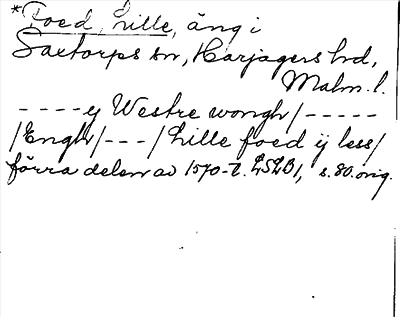 *Foed, Lille, äng i
Saxtorps sn, Harjagers hd,
Malm. l.
- - - - ij Westre wongh/- - - - -
/Engh/- - -/Lille foed ij less/
förra delen av 1570-t. LSLB1, s. 80. orig.